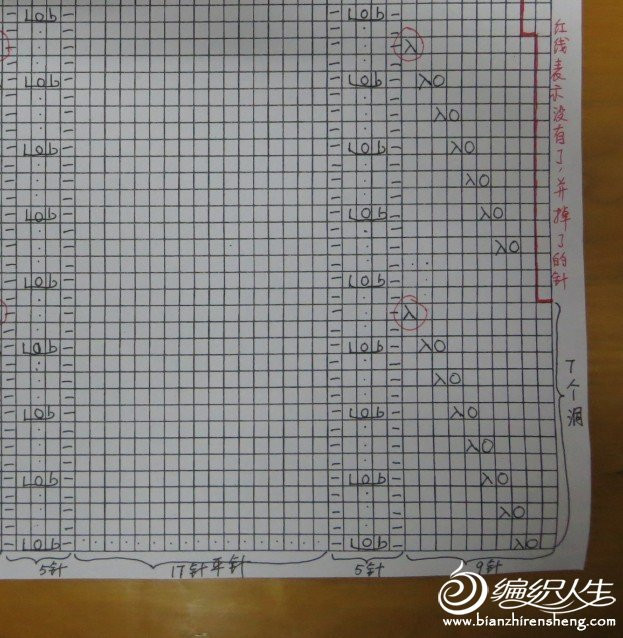 红线表示没有了,并掉了的针
7个洞
5针
17针平针
5针
9针
编织人生
www.bianzhirensheng.com